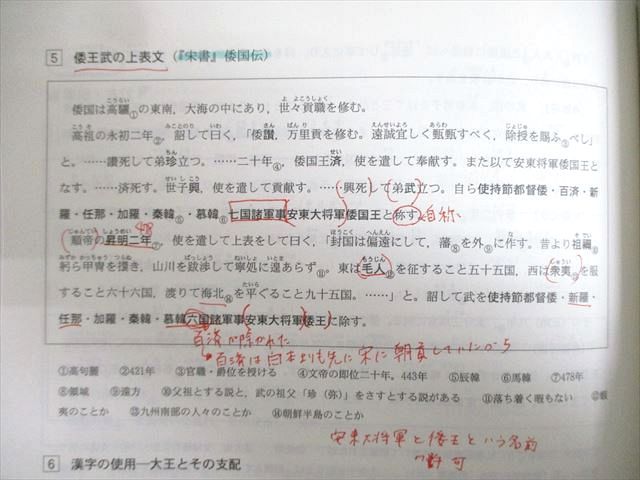 5 倭王武の上表文(『宋書』倭国伝)
倭国は高驪①の東南,大海の中にあり,世々貢職を修む。
高祖の永初二年②,詔して曰く,「倭讃,万里貢を修む。遠誠宜しく甄すべく,除授を賜ふ③べし」
と。……讃死して弟珍立つ。……二十年④,倭国王済,使を遣して奉献す。また以て安東将軍倭国王と
なす。……済死す。世子興,使を遣して貢献す。……興死して弟武立つ。自ら使持節都督倭・百済・新
羅・任那・加羅・秦韓⑤・慕韓⑥七国諸軍事安東大将軍倭国王と称す 自称
478
順帝の昇明二年⑦,使を遣して上表をして曰く,「封国は偏遠にして,藩⑧を外⑨に作す。昔より祖禰⑩
躬ら甲冑を擐き,山川を跋渉して寧処に遑あらず⑪。東は毛人⑫を征すること五十五国,西は衆夷⑬を服
すること六十六国,渡りて海北⑭を平ぐること九十五国。……」と。詔して武を使持節都督倭・新羅・
任那・加羅・秦韓・慕韓六国諸軍事安東大将軍倭王に除す。
百済が除かれた
百済は日本よりも先に宋に朝貢していたから
①高句麗 ②421年 ③官職・爵位を授ける ④文帝の即位二十年。443年 ⑤辰韓 ⑥馬韓 ⑦478年
⑧領域 ⑨遠方 ⑩父祖とする説と,武の祖父「珍(弥)」をさすとする説がある ⑪落ち着く暇もない ⑫蝦
夷のことか ⑬九州南部の人々のことか ⑭朝鮮半島のことか
安東大将軍と倭王という名前
許可
6 漢字の使用―大王とその支配